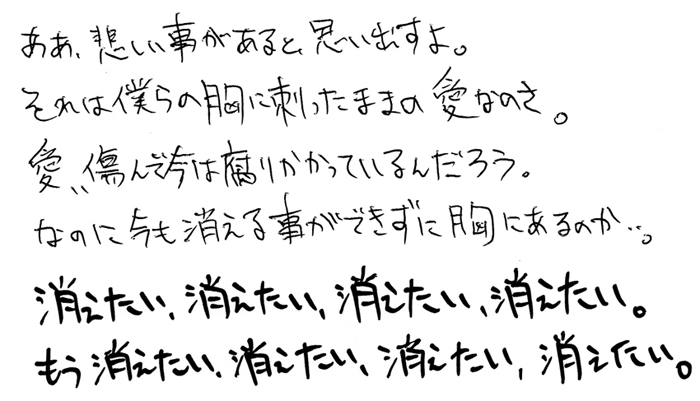 ああ、悲しい事があると、思い出すよ。
それは僕らの胸に刺ったままの愛なのさ。
愛、傷んで今は腐りかかっているんだろう。
なのに今も消える事ができずに胸にあるのか…。
消えたい、消えたい、消えたい、消えたい。
もう消えたい、消えたい、消えたい、消えたい。